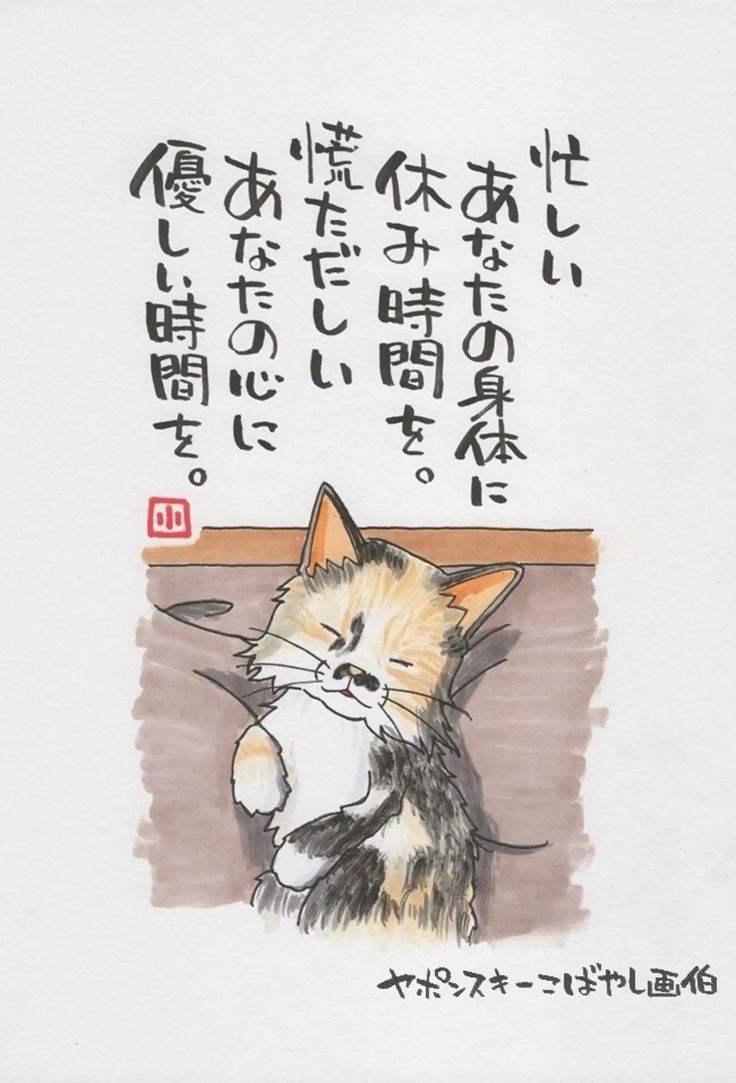 忙しい
あなたの身体に
休み時間を。
慌ただしい
あなたの心に
優しい時間を。
小
ヤポンスキーこばやし画伯